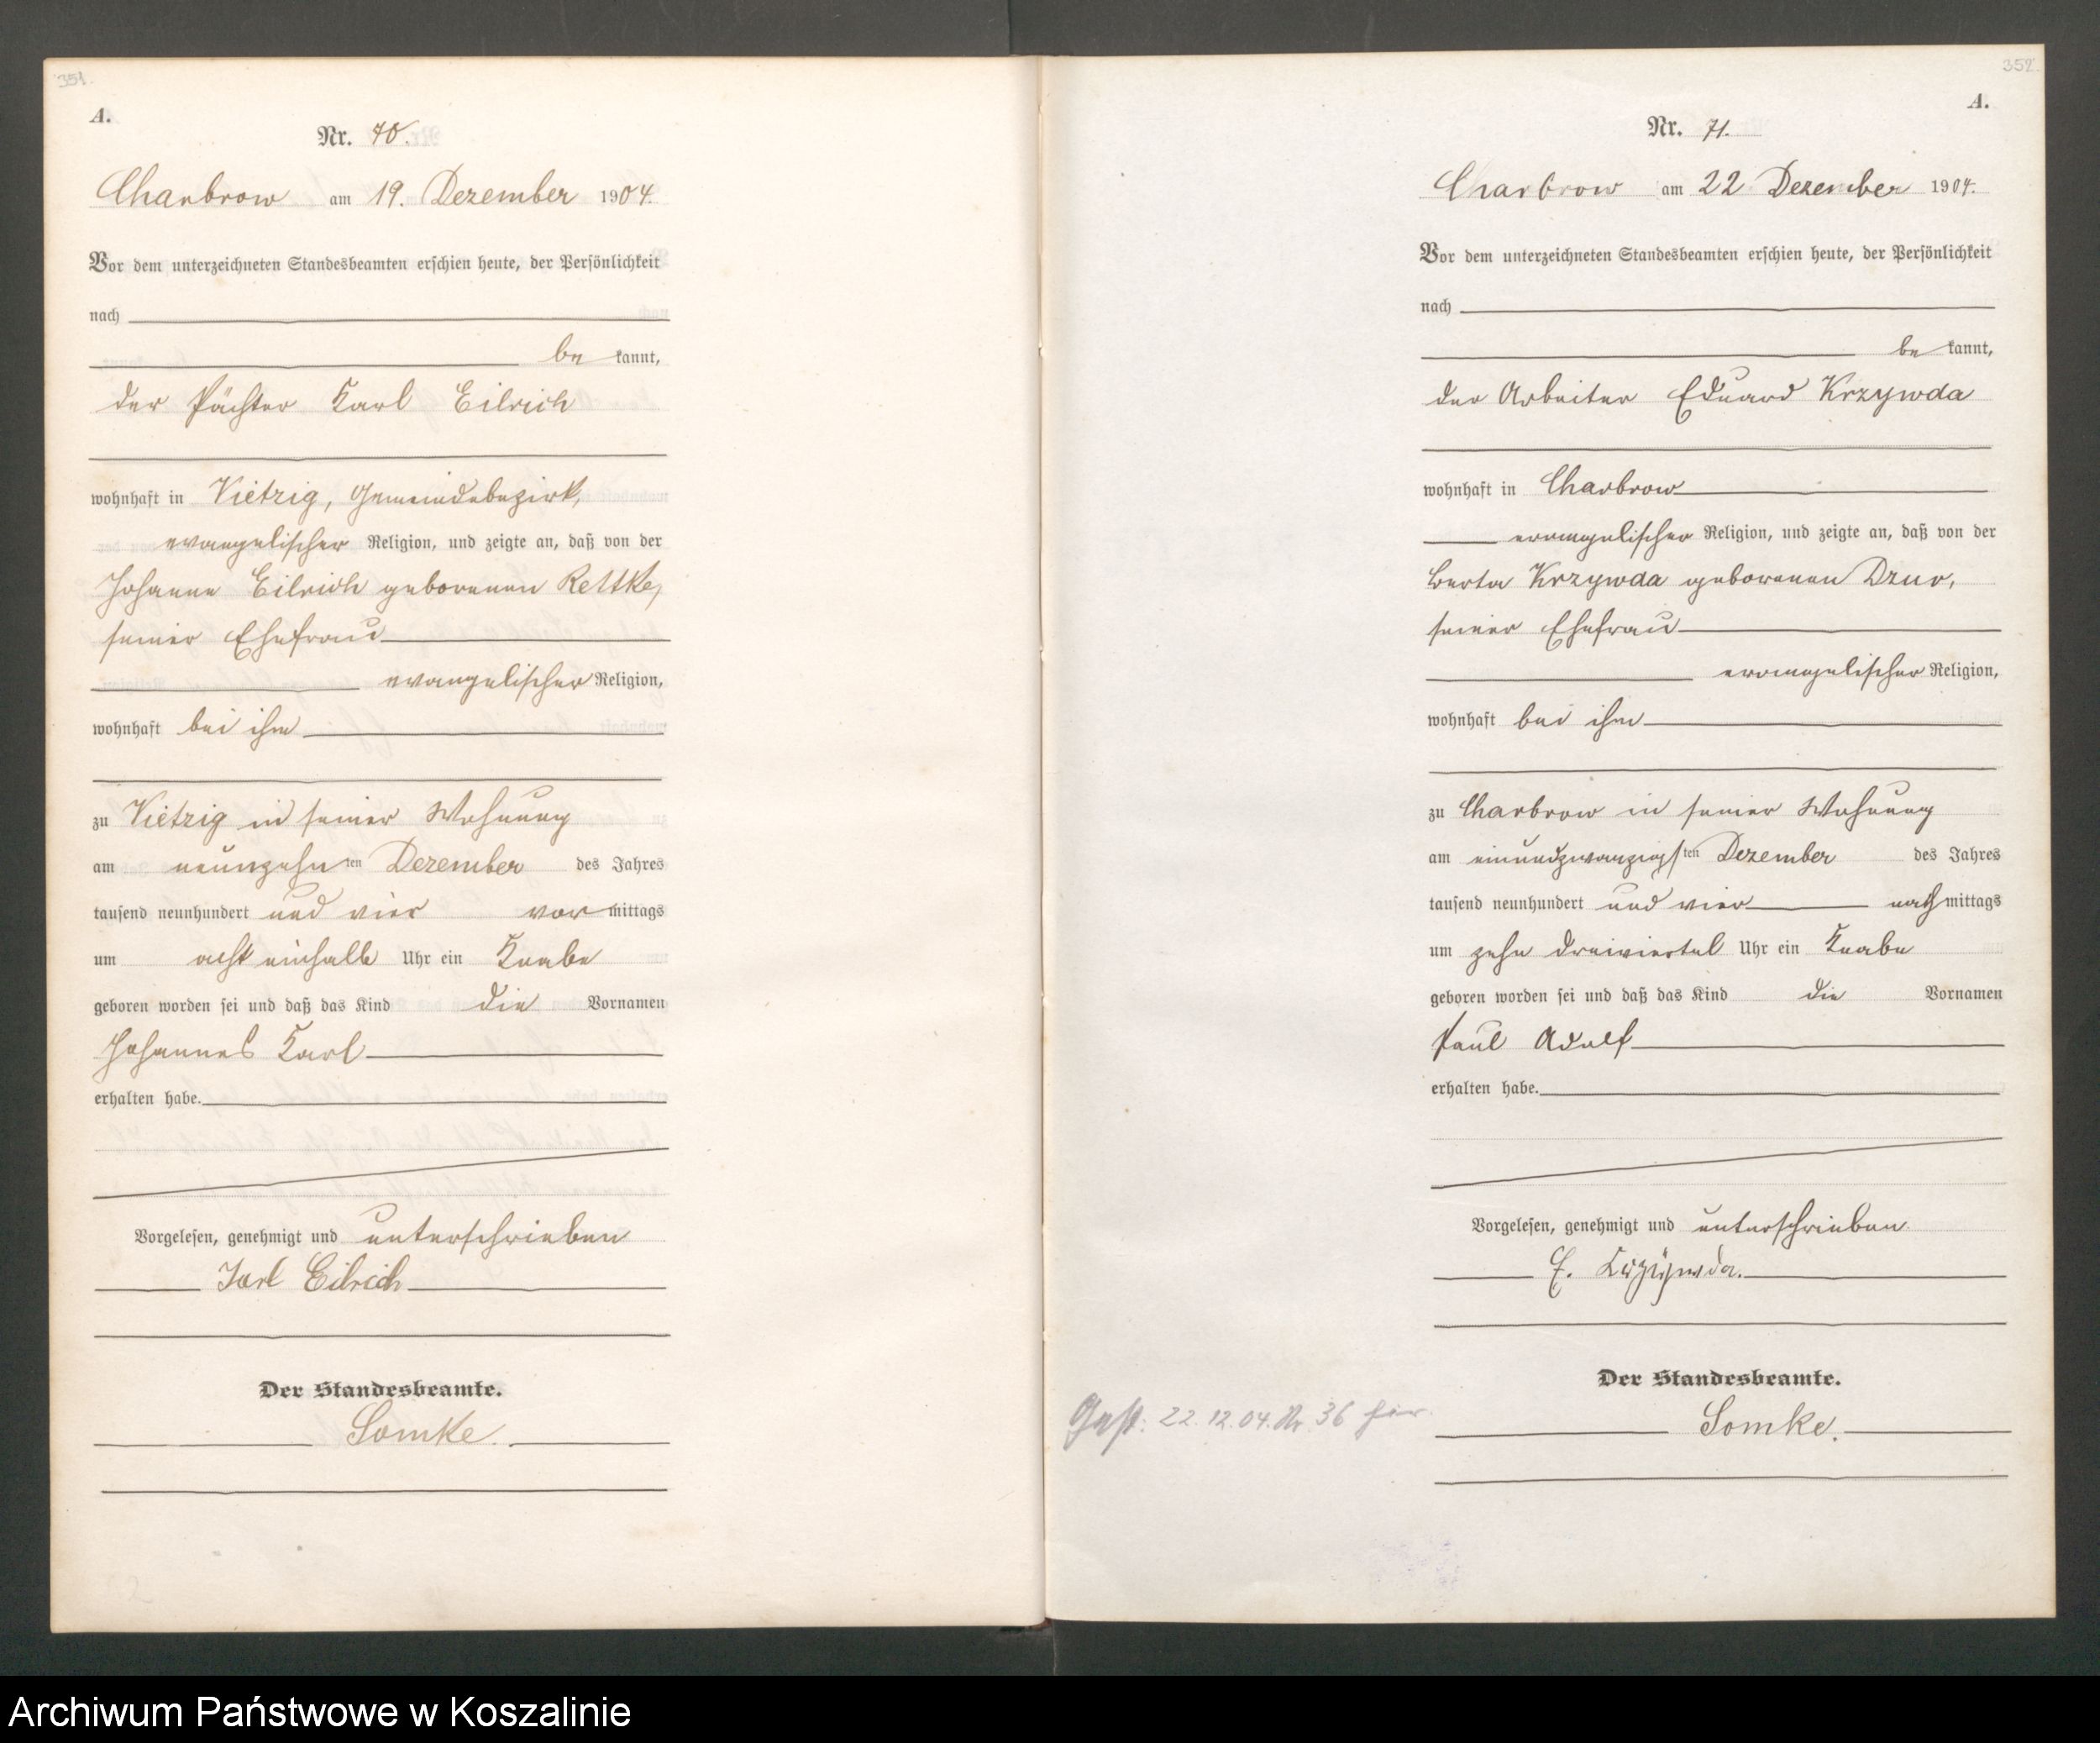 351.
A.
Nr. 70.
Charbrow am 19. Dezember 1904.
Vor dem unterzeichneten Standesbeamten erschien heute, der Persönlichkeit
nach
be kannt,
der Pächter Karl Eilrich
wohnhaft in Vietzig, Gemeindebezirk,
evangelischer Religion, und zeigte an, daß von der
Johanne Eilrich geborenen Rettke,
seiner Ehefrau
evangelischer Religion,
wohnhaft bei ihm
zu Vietzig in seiner Wohnung
am neunzehn ten Dezember des Jahres
tausend neunhundert und vier vor mittags
um acht einhalb Uhr ein Knabe
geboren worden sei und daß das Kind die Vornamen
Johannes Karl
erhalten habe.
Vorgelesen, genehmigt und unterschrieben
Karl Eilrich
Der Standesbeamte.
Somke.
352.
A.
Nr. 71.
Charbrow am 22 Dezember 1904.
Vor dem unterzeichneten Standesbeamten erschien heute, der Persönlichkeit
nach
be kannt,
der Arbeiter Eduard Krzywda
wohnhaft in Charbrow
evangelischer Religion, und zeigte an, daß von der
Berta Krzywda geborenen Dzur,
seiner Ehefrau
evangelischer Religion,
wohnhaft bei ihm
zu Charbrow in seiner Wohnung
am einundzwanzigs ten Dezember des Jahres
tausend neunhundert und vier nach mittags
um zehn dreiviertel Uhr ein Knabe
geboren worden sei und daß das Kind die Vornamen
Paul Adolf
erhalten habe.
Vorgelesen, genehmigt und unterschrieben
E. Krzÿwda.
Der Standesbeamte.
Somke.
Gest: 22.12.04. Nr 36 hier
Archiwum Państwowe w Koszalinie